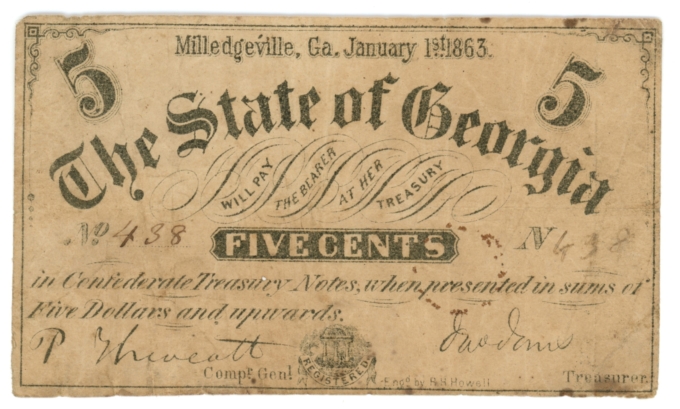 Milledgeville, Ga. January 1st 1863.
5 5
The State of Georgia
WILL PAY THE BEARER AT HER TREASURY
No 438 N 438
FIVE CENTS
in Confederate Treasury Notes, when presented in sums of
Five Dollars and upwards.
Compt Genl Treasurer
REGISTERED
Engd by R.H. Howell